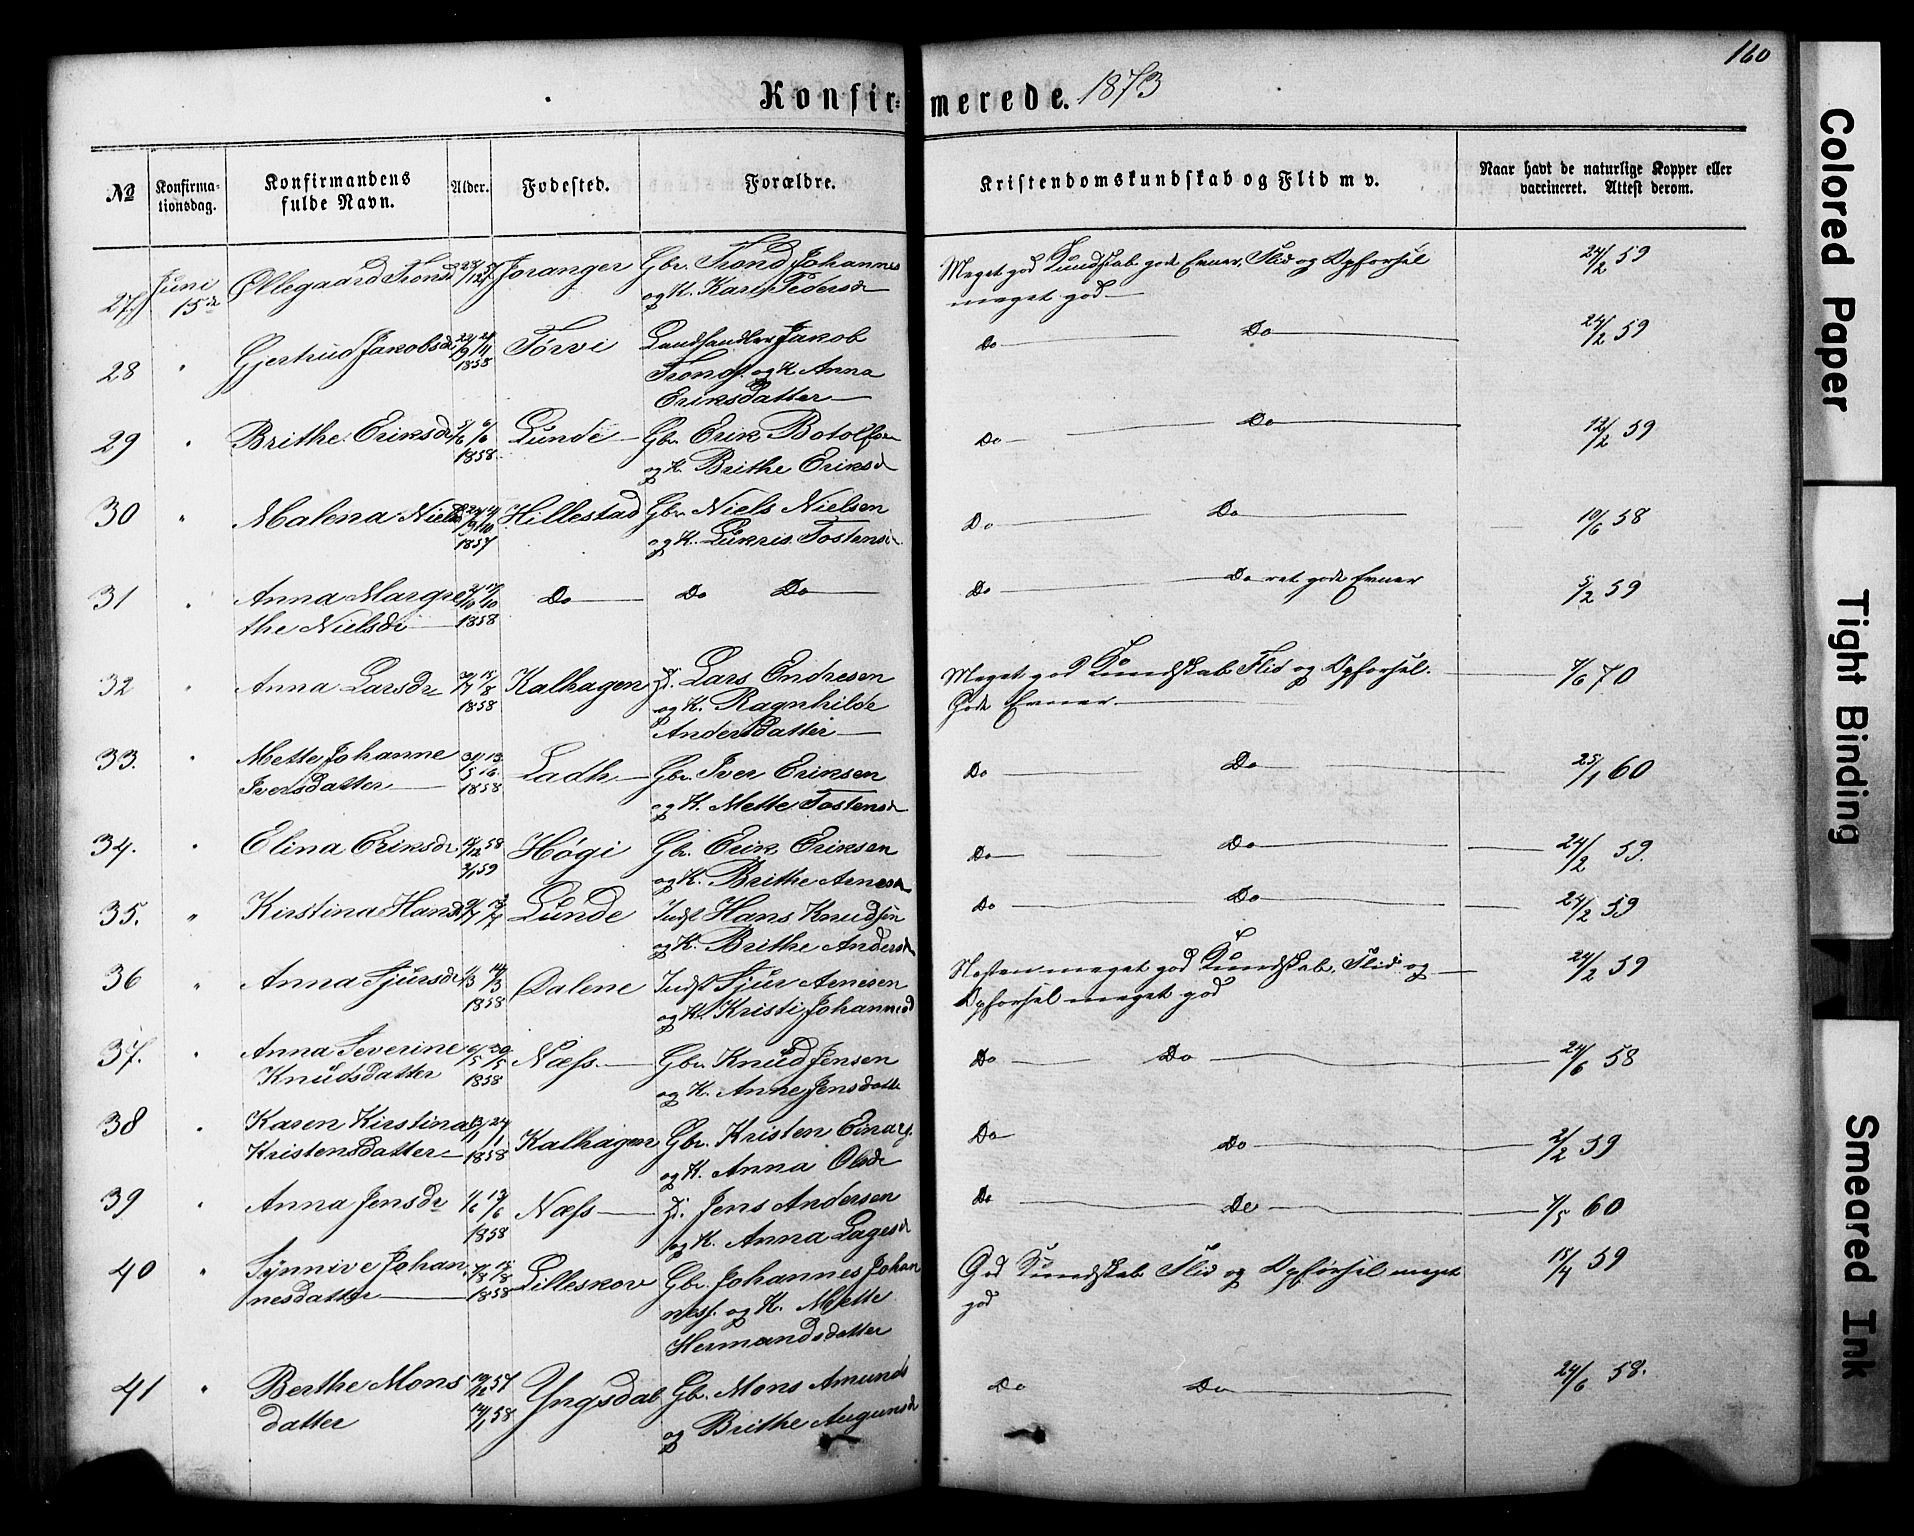 160
Konfirmerede. 1873
No
Konfirmationsdag.
Konfirmandens fulde Navn.
Alder.
Fødested.
Forældre.
Kristendomskundskab og Flid m v.
Naar havt de naturlige Kopper eller vaccineret. Attest derom.
27 Juni 15de Øllegaard Tronsd Joranger Gbr. Trond Johannes Meget god Kundskab gode Evner, Flid og Opførsel 24/2 59
og K. Kari Pedersd meget god
28 " Gjertrud Jakobsdr 1858 Tørvi Landhandler Jakob Do Do 24/2 59
Trondf. og K Anna
Eriksdatter
29 " Brithe Eriksdr 1858 Lunde Gbr. Erik Botolfsen Do Do 12/2 59
og K. Brithe Eriksd
30 " Malena Nielsd 1857 Hillestad Gbr. Niels Nielsen Do Do 10/6 58
og K. Lukris Tostensd
31 " Anna Margre Do Do Do Do Do ret gode Evner 5/2 59
the Nielsdr 1858
32 " Anna Larsdr 1858 Kalhagen Lars Endresen Meget god Kundskab Flid og Opførsel. 7/6 70
og K. Ragnhilde Gode Evner
Andersdatter
33. " Mette Johanne Ladh Gbr. Iver Eriksen Do Do 25/1 60
Iversdatter 1858 og K. Mette Tostensd
34. " Elina Eriksdr 58 Høgi Gb. Erik Eriksen Do Do 24/2 59.
2/1 59 og K. Brithe Arnesd
35. " Kirstina Hansd Lunde Indst Hans Knudsen Do Do 24/2 59
og K. Brithe Andersd
36 " Anna Sjursdr 1858 Dalene Indst Sjur Arnesen Nesten meget god Kundskab, Flid og 24/2 59
og K. Kristi Johannesd Opførsel meget god
37. " Anna Severine 6/5 30/5 Næss Gbr. Knud Jensen Do Do 24/6 58
Knudsdatter 1858 og K. Anne Jensdatte
38 " Karen Kirstina 13/1 24/1 Kalhagen Gbr. Kristen Einars. Do Do 2/2 59
Kristensdatter 1858 og K. Anna Olsdr
39 " Anna Jensdr 1/6 13/6 1858 Næss Jens Andersen Do Do 7/5 60
og K. Anna Lagesd
40 " Synnive Johan Lilleskov Gbr. Johannes Johan God Kundskab Flid og Opførsel meget 18/4 59
nesdatter 1858 nesf. og K. Mette god
Hermandsdatter
41 " Berthe Mons 57 Yngsdal Gb. Mons Amunds Do Do 24/6 58.
datter 14/1 58 og Brithe Augunsd
Colored Paper
Tight Binding
Smeared Ink